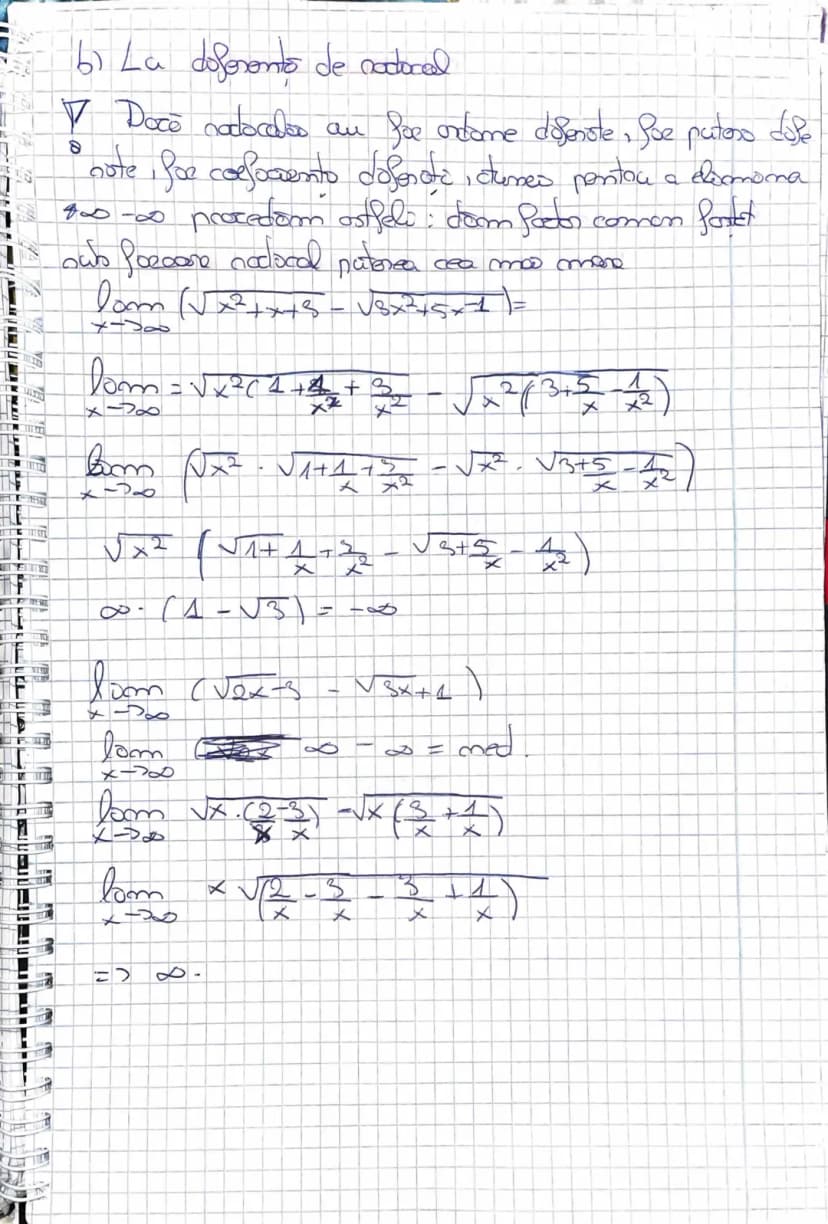 b) La diferențe de radical
∇ Dacă radicalii au fie ordine diferite, fie puteri dife
rite, fie coeficienți diferiți, atunci pentru a elimina
+∞ -∞ procedăm astfel: dăm factor comun forțat
sub fiecare radical puterea cea mai mare
lim x->∞ (√(x²+x+3) - √(3x²+5x-1)) =
lim x->∞ = √(x²(1+1/x+3/x²)) - √(x²(3+5/x-1/x²))
lim x->∞ (√x² · √(1+1/x+3/x²) - √x² · √(3+5/x-1/x²))
√x² (√(1+1/x+3/x²) - √(3+5/x-1/x²))
∞ · (1 - √3) = -∞
lim x->∞ (√2x-3 - √3x+1)
lim x->∞ ∞ - ∞ = ned.
lim x->∞ √(x·(2/x-3/x)) - √(x(3/x+1/x))
lim x->∞ x √(2/x - 3/x - 3/x + 1/x)
=> ∞.